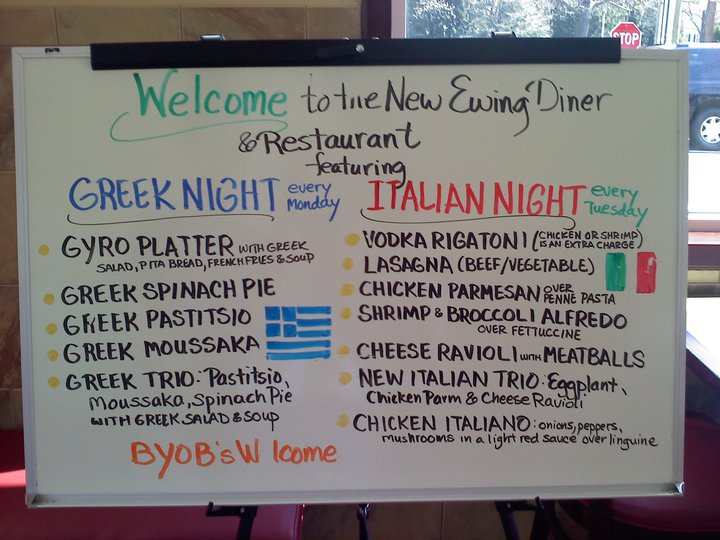 STOP
Welcome to the New Ewing Diner
& Restaurant
featuring
GREEK NIGHT every
Monday
GYRO PLATTER WITH GREEK
SALAD, PITA BREAD, FRENCH FRIES & SOUP
GREEK SPINACH PIE
GREEK PASTITSIO
GREEK MOUSSAKA
GREEK TRIO: Pastitsio,
Moussaka, Spinach Pie
WITH GREEK SALAD & SOUP
BYOB's W lcome
ITALIAN NIGHT every
Tuesday
VODKA RIGATONI (CHICKEN OR SHRIMP
IS AN EXTRA CHARGE)
LASAGNA (BEEF/VEGETABLE)
CHICKEN PARMESAN OVER
PENNE PASTA
SHRIMP & BROCCOLI ALFREDO
OVER FETTUCCINE
CHEESE RAVIOLI WITH MEATBALLS
NEW ITALIAN TRIO: Eggplant,
Chicken Parm & Cheese Ravioli
CHICKEN ITALIANO: onions, peppers,
mushrooms in a light red sauce over linguine